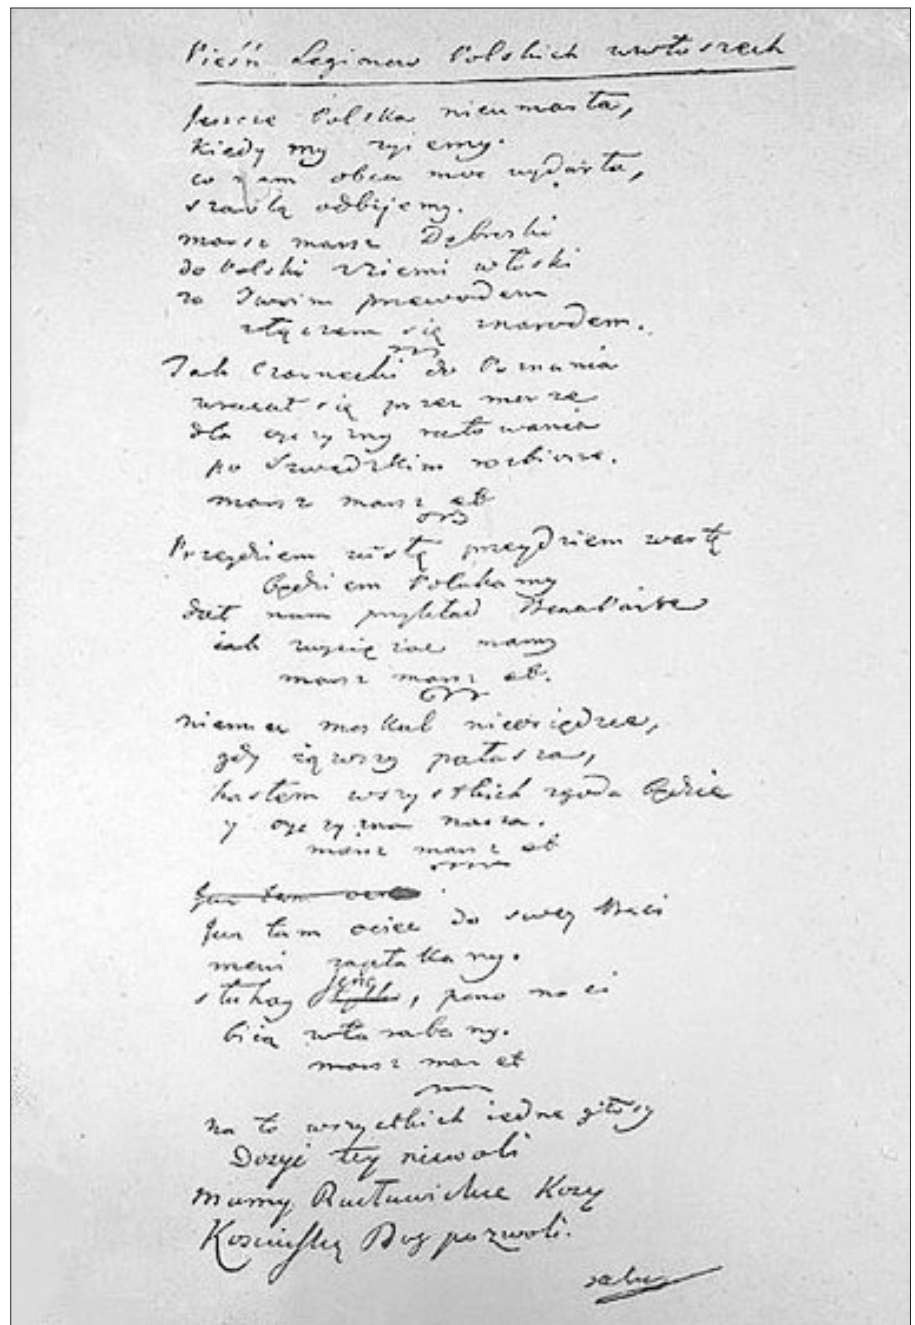 Pieśń Legionow Polskich wewłoszech
Jeszcze Polska nieumarła,
kiedy my żyiemy.
co nam obca moc wydarła,
szablą odbijemy.
marsz marsz Dąbrowski
do Polski zziemi włoski
za Twoim przewodem
złączem się znarodem.
Jak Czarnecki do Poznania
wracał się przez morze
dla oyczyzny ratowania
po Szwedzkim rozbiorze.
marsz marsz et
Przeydziem wisłę przeydziem wartę
będziem Polakamy
dał nam przykład Bonaparte
iak zwyciężać mamy
marsz marsz et.
niemiec moskal nieosiędzie,
gdy iąwszy pałasza,
hasłem wszystkich zgoda będzie
y oyczyzna nasza.
marsz marsz et
Jusz tam
Jusz tam ociec do swey Basi
mowi zapłakany.
słuhay jeno, pono nasi
bią wtarabany.
marsz mar et
na to wszystkich iedne głosy
Dosyć tey niewoli
mamy Racławickie Kosy
Kosciuszkę Bog pozwoli.